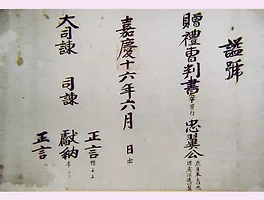 諡號
贈禮曹判書 忠翼公
嘉慶十六年六月 日
大司諫 司諫 獻納 正言
正言